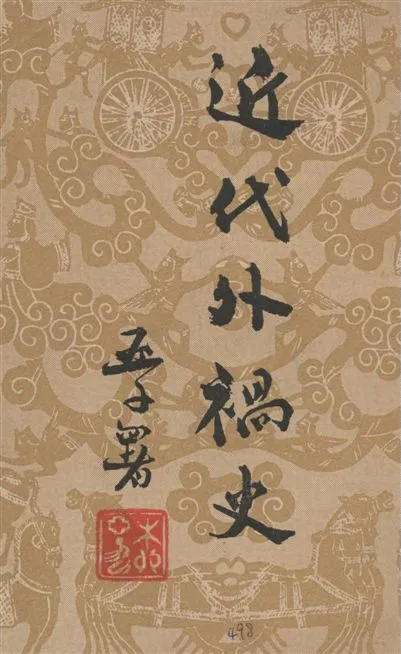 近代外禍史
孟子署
498